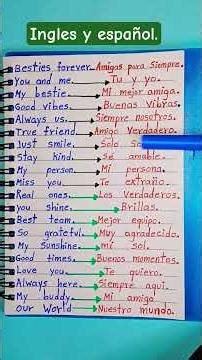 Ingles y español.
Besties forever Amigas para Siempre.
You and me. Tu y yo.
My bestie. Mi mejor amiga.
Good vibes. Buenas Vibras.
Always us. Siempre nosotros.
True friend Amigo Verdadero.
Just smile. Solo
Stay kind. Sé amable.
My person. Mi persona.
Miss you. Te extraño.
Real ones. Los Verdaderos.
you shine. Brillas.
Best team. Mejor equipo.
So grateful. Muy agradecido.
My Sunshine. mi sol.
Good times. Buenos momentos.
Love you. Te quiero.
Always here. Siempre aquí.
My buddy. Mi amigo
Our World Nuestro mundo.